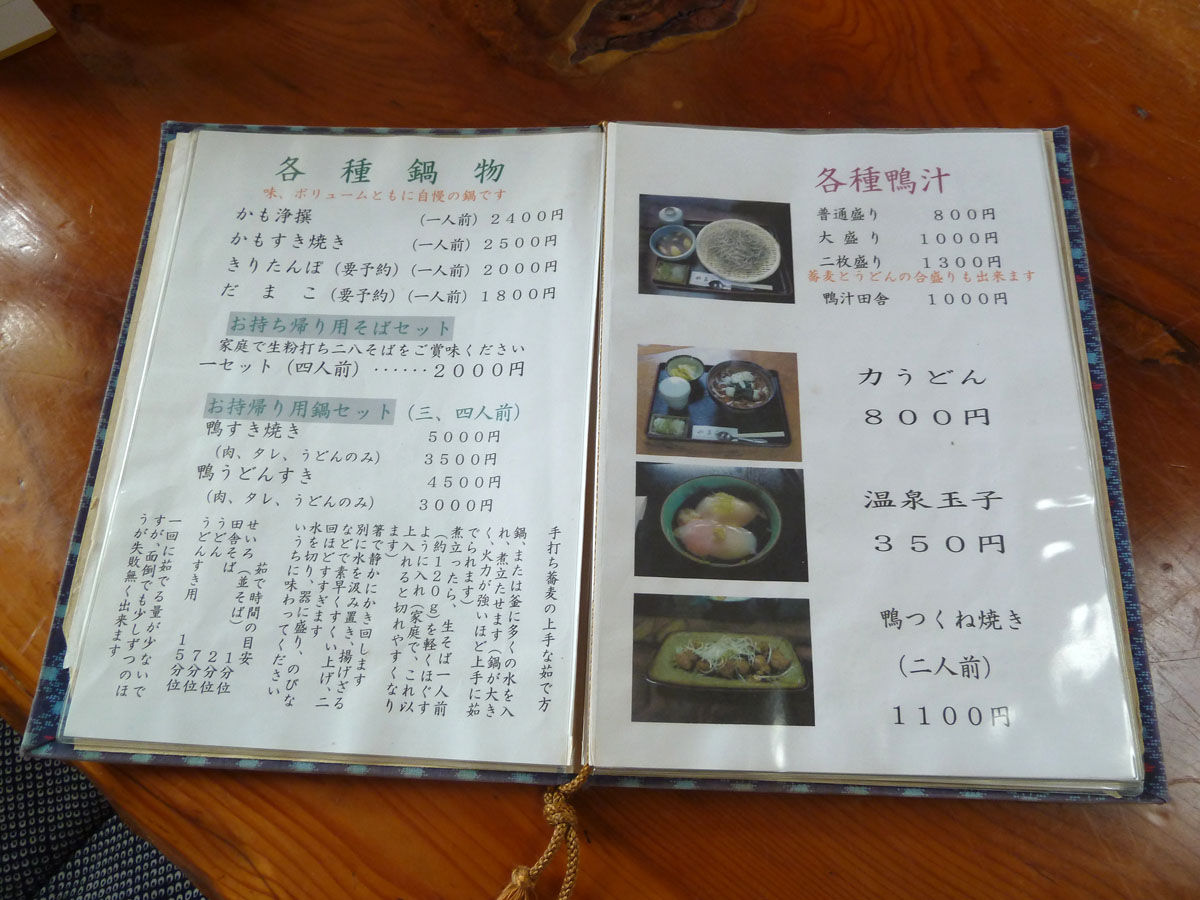 各種鍋物
味、ボリュームともに自慢の鍋です
かも浄撰 (一人前) 2400円
かもすき焼き (一人前) 2500円
きりたんぽ (要予約) (一人前) 2000円
だまこ (要予約) (一人前) 1800円
お持ち帰り用そばセット
家庭で生粉打ち二八そばをご賞味ください
一セット (四人前) ‥‥‥2000円
お持帰り用鍋セット (三、四人前)
鴨すき焼き 5000円
(肉、タレ、うどんのみ) 3500円
鴨うどんすき 4500円
(肉、タレ、うどんのみ) 3000円
手打ち蕎麦の上手な茹で方
鍋、または釜に多くの水を入
れ、煮立たせます(鍋が大き
く、火力が強いほど上手に茹
でられます)
煮立ったら、生そば一人前
(約120g)を軽くほぐす
ように入れ(家庭で、これ以
上入れると切れやすくなり
ます)
箸で静かにかき回します
別に水を汲み置き、揚げざる
などで素早くすくい上げ、二
回ほどすすぎます
水を切り、器に盛り、のびな
いうちに味わってください
せいろ 茹で時間の目安
(並そば) 1分位
田舎そば 2分位
うどん 7分位
うどんすき用 15分位
一回に茹でる量が少ないで
すが、面倒でも少しずつのほ
うが失敗無く出来ます
各種鴨汁
普通盛り 800円
大盛り 1000円
二枚盛り 1300円
蕎麦とうどんの合盛りも出来ます
鴨汁田舎 1000円
力うどん
800円
温泉玉子
350円
鴨つくね焼き
(二人前)
1100円